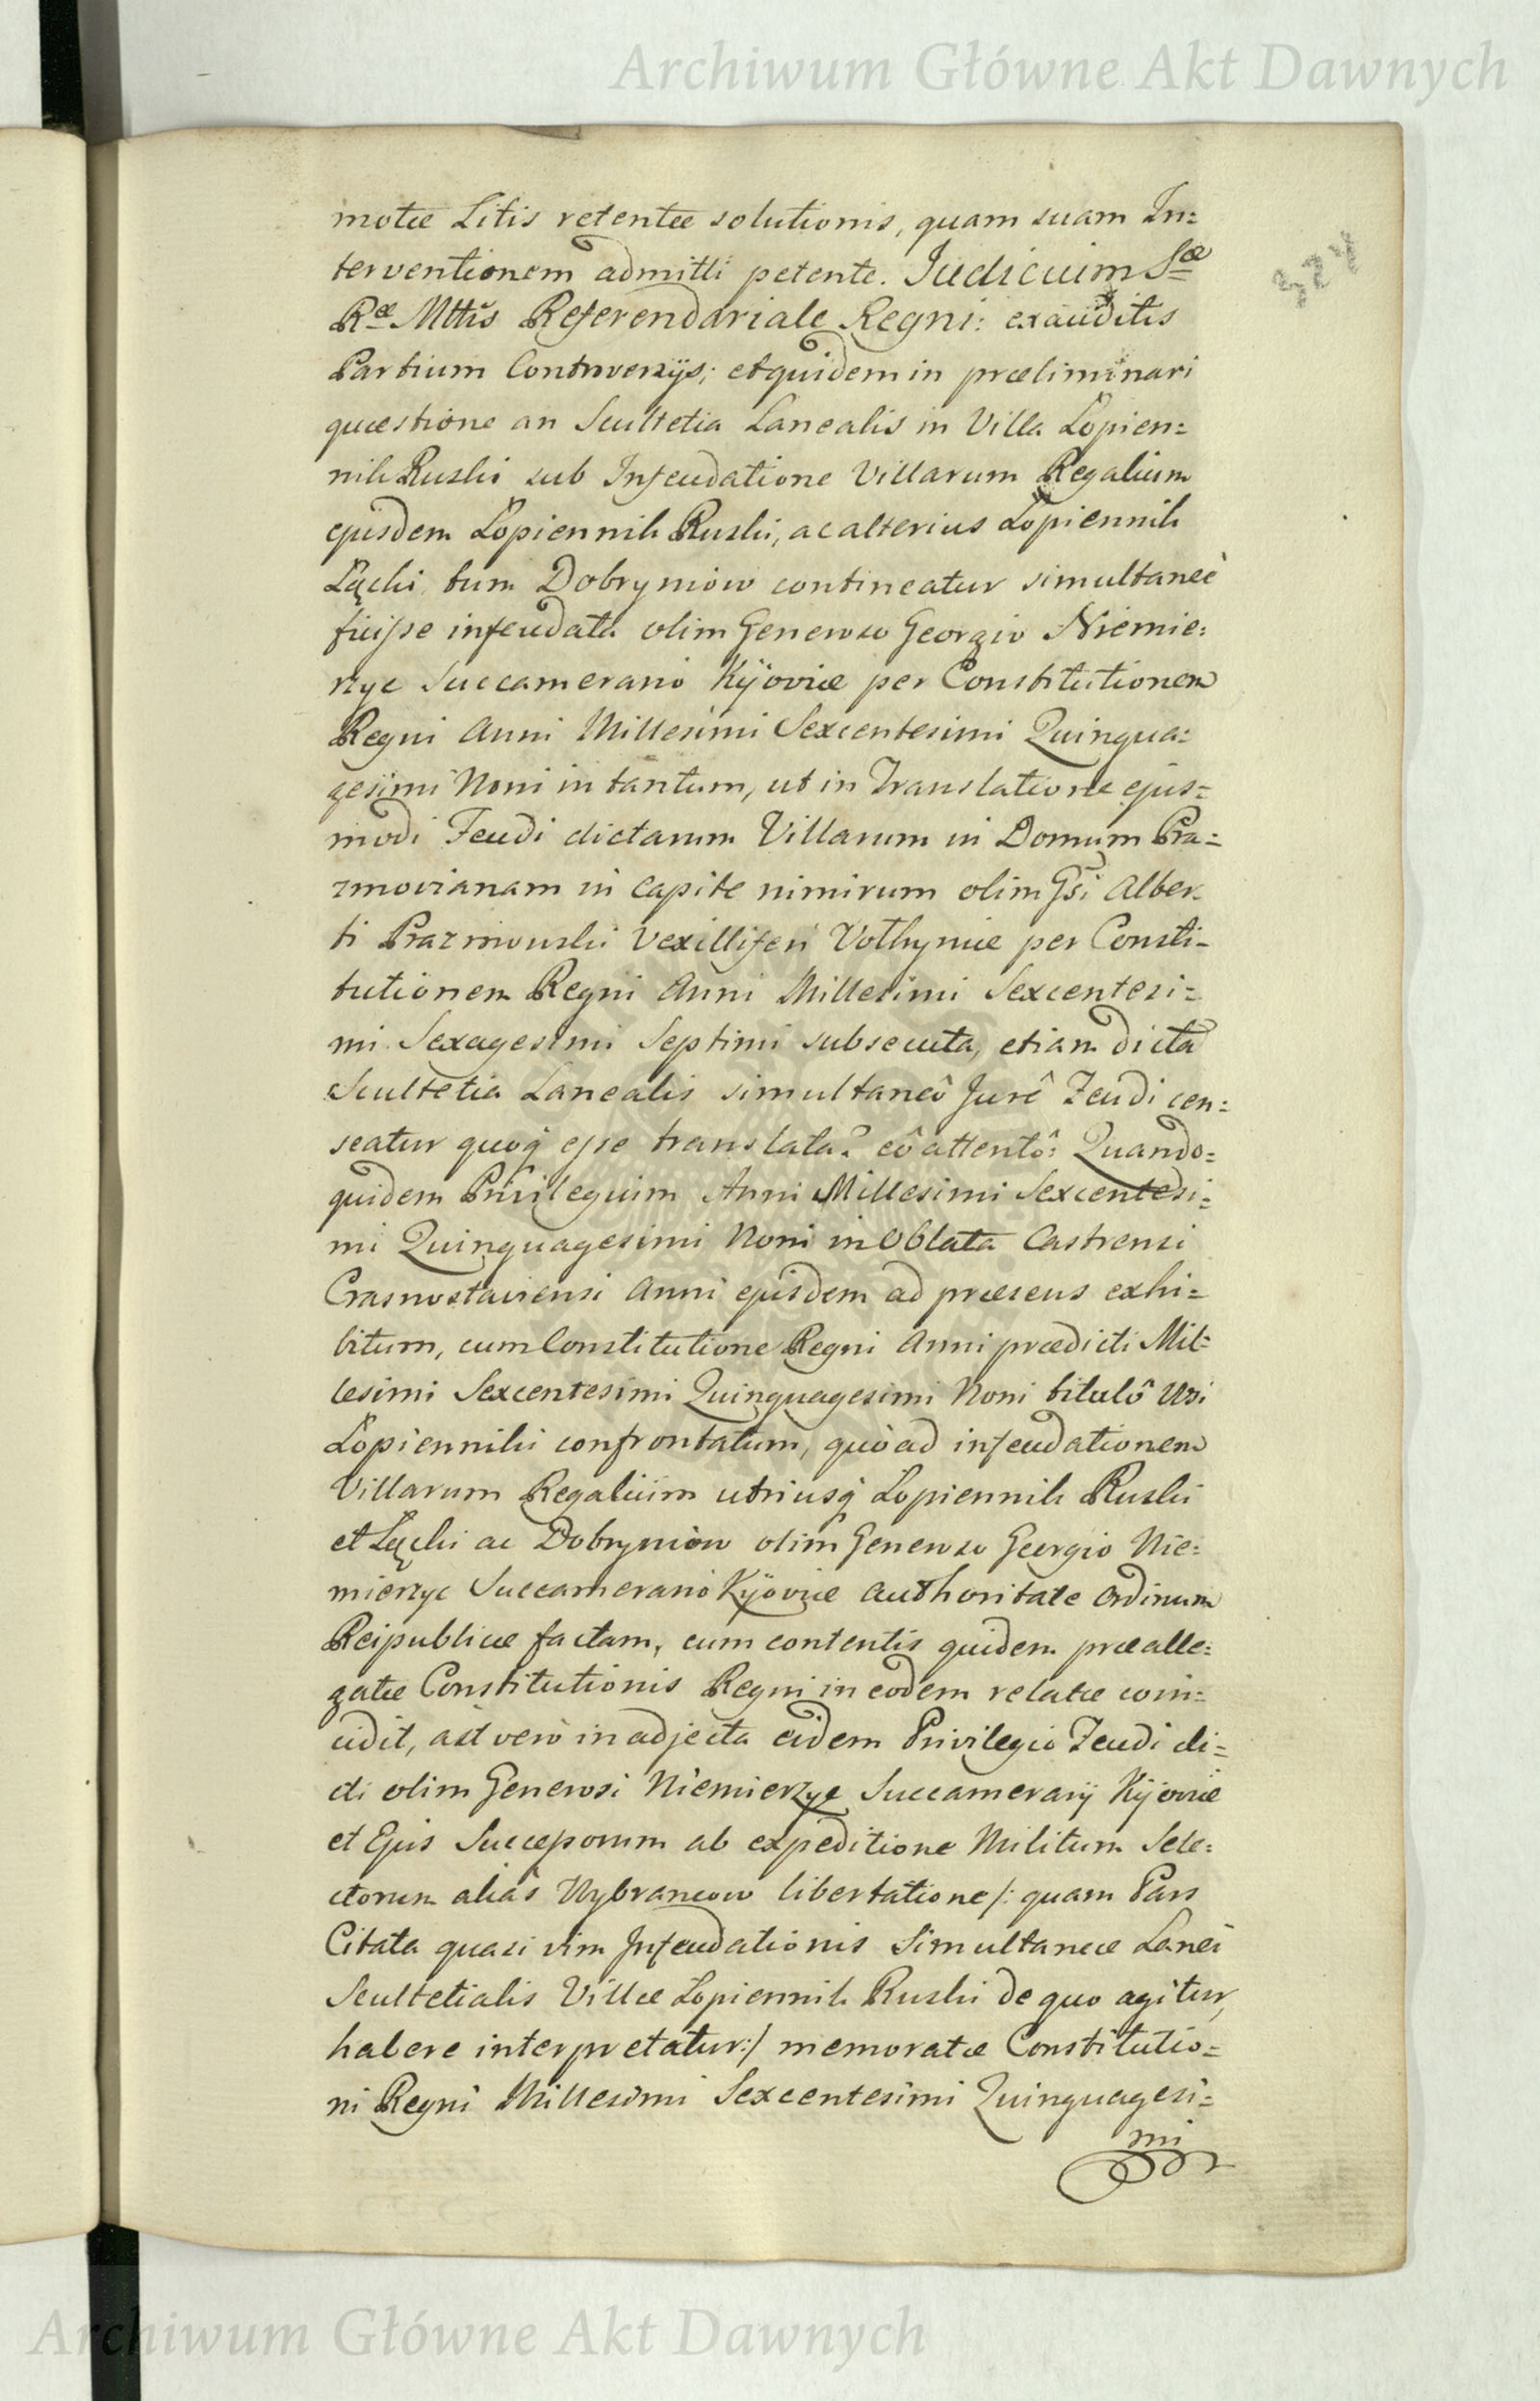 Archiwum Główne Akt Dawnych
324
motæ Litis retentæ solutionis, quam suam In=
terventionem admitti petente. Judicium Sæ
Ræ Mttis Referendariale Regni: exauditis
Partium Controversijs; et quidem in præliminari
quæstione an Scultetia Lanealis in Villa Łopien=
nik Ruski sub Infeudatione Villarum Regalium
ejusdem Łopiennik Ruski, ac alterius Łopiennik
Lącki, tum Dobryniow contineatur simultaneè
fuisse infeudata olim Generoso Georgio Niemie:
rzyc Succamerario Kijoviæ per Constitutionem
Regni Anni Millesimi Sexcentesimi Quinqua=
gesimi Noni in tantum, ut in Translatione ejus=
modi Feudi dictarum Villarum in Domum Pra=
zmovianam in capite nimirum olim Gsi Alber-
ti Prazmowski Vexilliferi Volhyniæ per Consti-
tutionem Regni Anni Millesimi Sexcentesi=
mi Sexagesimi Septimi subsecuta, etiam dicta
Scultetia Lanealis simultaneô Jurê Feudi cen=
seatur quoq̃ esse translata? eô attentô: Quando=
quidem Privilegium Anni Millesimi Sexcentesi=
mi Quinquagesimi Noni in Oblata Castrensi
Crasnostaviensi Anni ejusdem ad præsens exhi=
bitum, cum Constitutione Regni Anni prædicti Mil=
lesimi Sexcentesimi Quinquagesimi Noni titulô Wsi
Łopienniki confrontatum, quoad infeudationem
Villarum Regalium utriusq̃ Łopiennik Ruski
et Lącki ac Dobryniow olim Generoso Georgio Nie=
mierzyc Succamerario Kijoviæ authoritate Ordinum
Reipublicæ factam, cum contentis quidem præalle=
gatæ Constitutionis Regni in eodem relatæ coin=
cidit, ast verò in adjecta eidem Privilegio Feudi di=
cti olim Generosi Niemierzyc Succamerarij Kijoviæ
et Ejus Successorum ab expeditione Militum Sele=
ctorum aliàs Wybrancow libertatione /: quam Pars
Citata quasi vim Infeudationis simultaneæ Lanei
Scultetialis Villæ Łopiennik Ruski de quo agitur,
habere interpretatur:/ memoratæ Constitutio=
ni Regni Millesimi Sexcentesimi Quinquagesi=
mi
Archiwum Główne Akt Dawnych